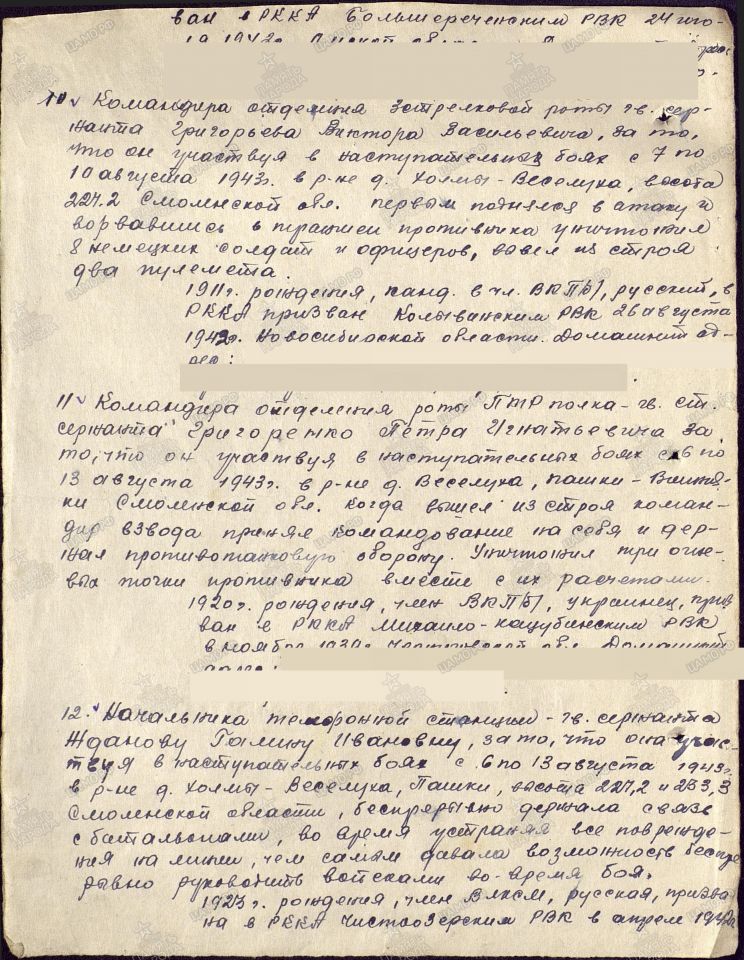 ван в РККА Большереченским РВК 24 ию-
1942г.
10. Командира отделения 3 стрелковой роты гв. сер-
жанта Григорьева Виктора Васильевича, за то,
что он участвуя в наступательных боях с 7 по
10 августа 1943г. в р-не д. Холмы-Веселуха, высота
224.2 Смоленской обл. первым поднялся в атаку и
ворвавшись в траншеи противника уничтожил
8 немецких солдат и офицеров, вывел из строя
два пулемета.
1911г. рождения, канд. в чл. ВКП/б/, русский, в
РККА призван Колыванским РВК 26 августа
1942г. Новосибирской области. Домашний ад-
рес:
11 Командира отделения роты ПТР полка - гв. ст.
сержанта Григоренко Петра Игнатьевича за
то, что он участвуя в наступательных боях с 6 по
13 августа 1943г. в р-не д. Веселуха, Пашки -
ки Смоленской обл. когда вышел из строя коман-
дир взвода принял командование на себя и дер-
жал противотанковую оборону. Уничтожил три огне-
вых точки противника вместе с их расчетами.
1920г. рождения, член ВКП/б/, украинец, приз
ван в РККА Михайло-Коцубинским РВК
в ноябре 1939г. обл. Домашний
адрес:
12. Начальника телефонной станции - гв. сержанта
Жданову Галину Ивановну, за то, что она учас-
твуя в наступательных боях с 6 по 13 августа 1943г.
в р-не д. Холмы - Веселуха, Пашки, высота 227,2 и 233,3
Смоленской области, беспрерывно держала связь
с батальонами, во время устраняя все поврежде-
ния на линии, чем самым давала возможность беспре
рывно руководить войсками во-время боя.
1923г. рождения, член ВЛКСМ, русская, призва
на в РККА Чистоозерским РВК в апреле 1942г